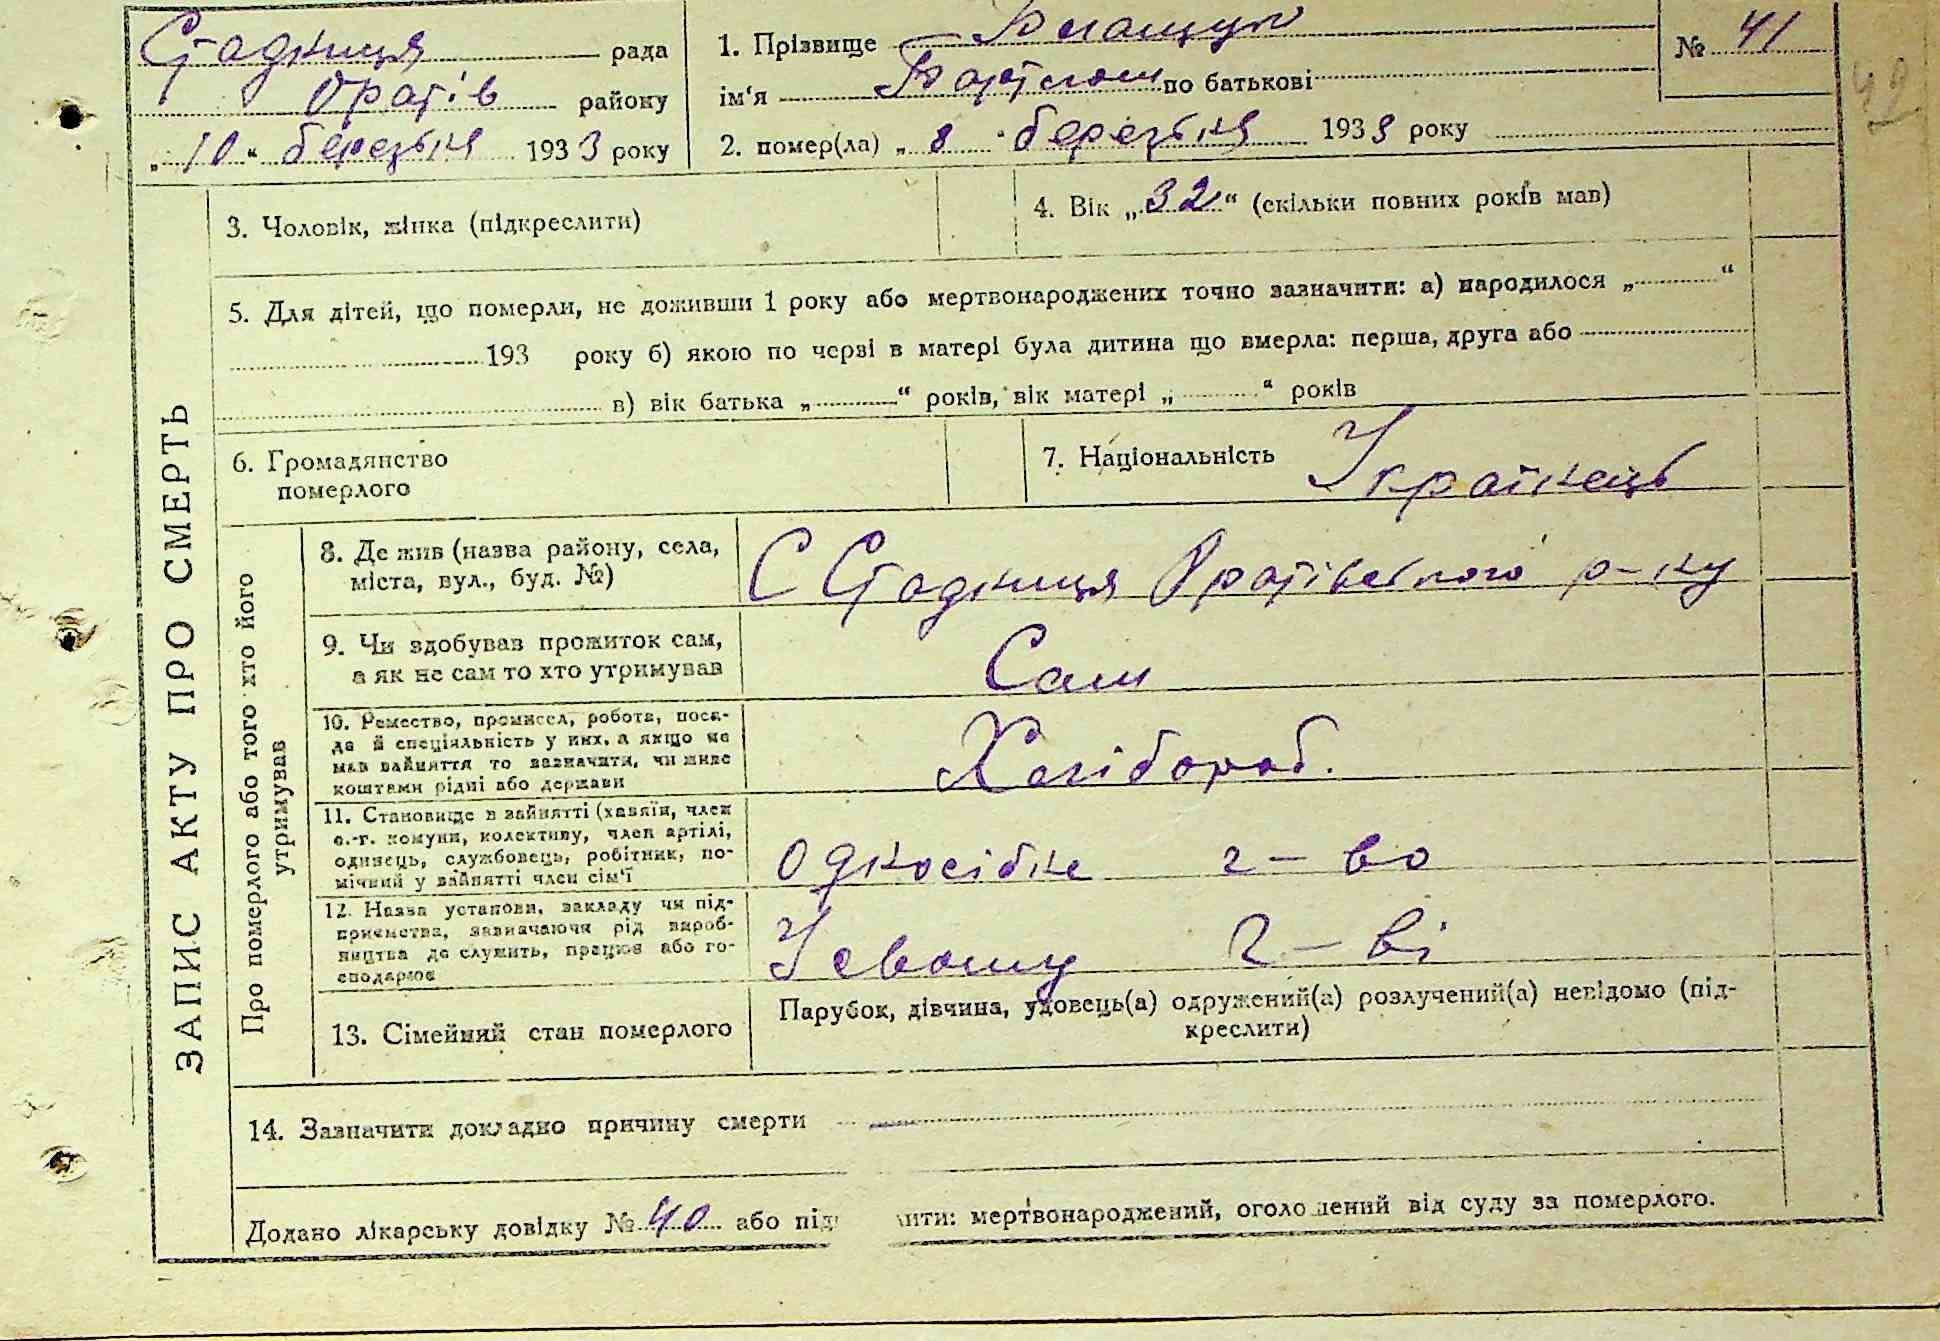 Стадниця рада
Оратів району
„10“ березня 1933 року
1. Прізвище
№ 41
42
ім‘я по батькові
2. помер(ла) „8 “ березня 1933 року
ЗАПИС АКТУ ПРО СМЕРТЬ
3. Чоловік, жінка (підкреслити)
4. Вік „32“ (скільки повних років мав)
5. Для дітей, що померли, не доживши 1 року або мертвонароджених точно зазначити: а) народилося „ “
193 року б) якою по черзі в матері була дитина що вмерла: перша, друга або
в) вік батька „ “ років, вік матері „ “ років
6. Громадянство
померлого
7. Національність Українець
Про померлого або того хто його
утримував
8. Де жив (назва району, села,
міста, вул., буд. №)
С Стадниця Оратівського р-ну
9. Чи здобував прожиток сам,
а як не сам то хто утримував
Сам
10. Ремество, промисел, робота, поса-
да й спеціяльність у них, а якщо не
мав зайняття то зазначити, чи живе
коштами рідні або держави
Хлібороб.
11. Становище в зайнятті (хазяїн, член
с.-г. комуни, колективу, член артілі,
одинець, службовець, робітник, по-
мічний у зайнятті член сім‘ї
Односібне г-во
12. Назва установи, закладу чи під-
приємства, зазначаючи рід вироб-
ництва де служить, працює або го-
сподарює
У свому г-ві
13. Сімейний стан померлого
Парубок, дівчина, удовець(а) одружений(а) розлучений(а) невідомо (під-
креслити)
14. Зазначити докладно причину смерти
Додано лікарську довідку № 40 або під ити: мертвонароджений, оголо ений від суду за померлого.